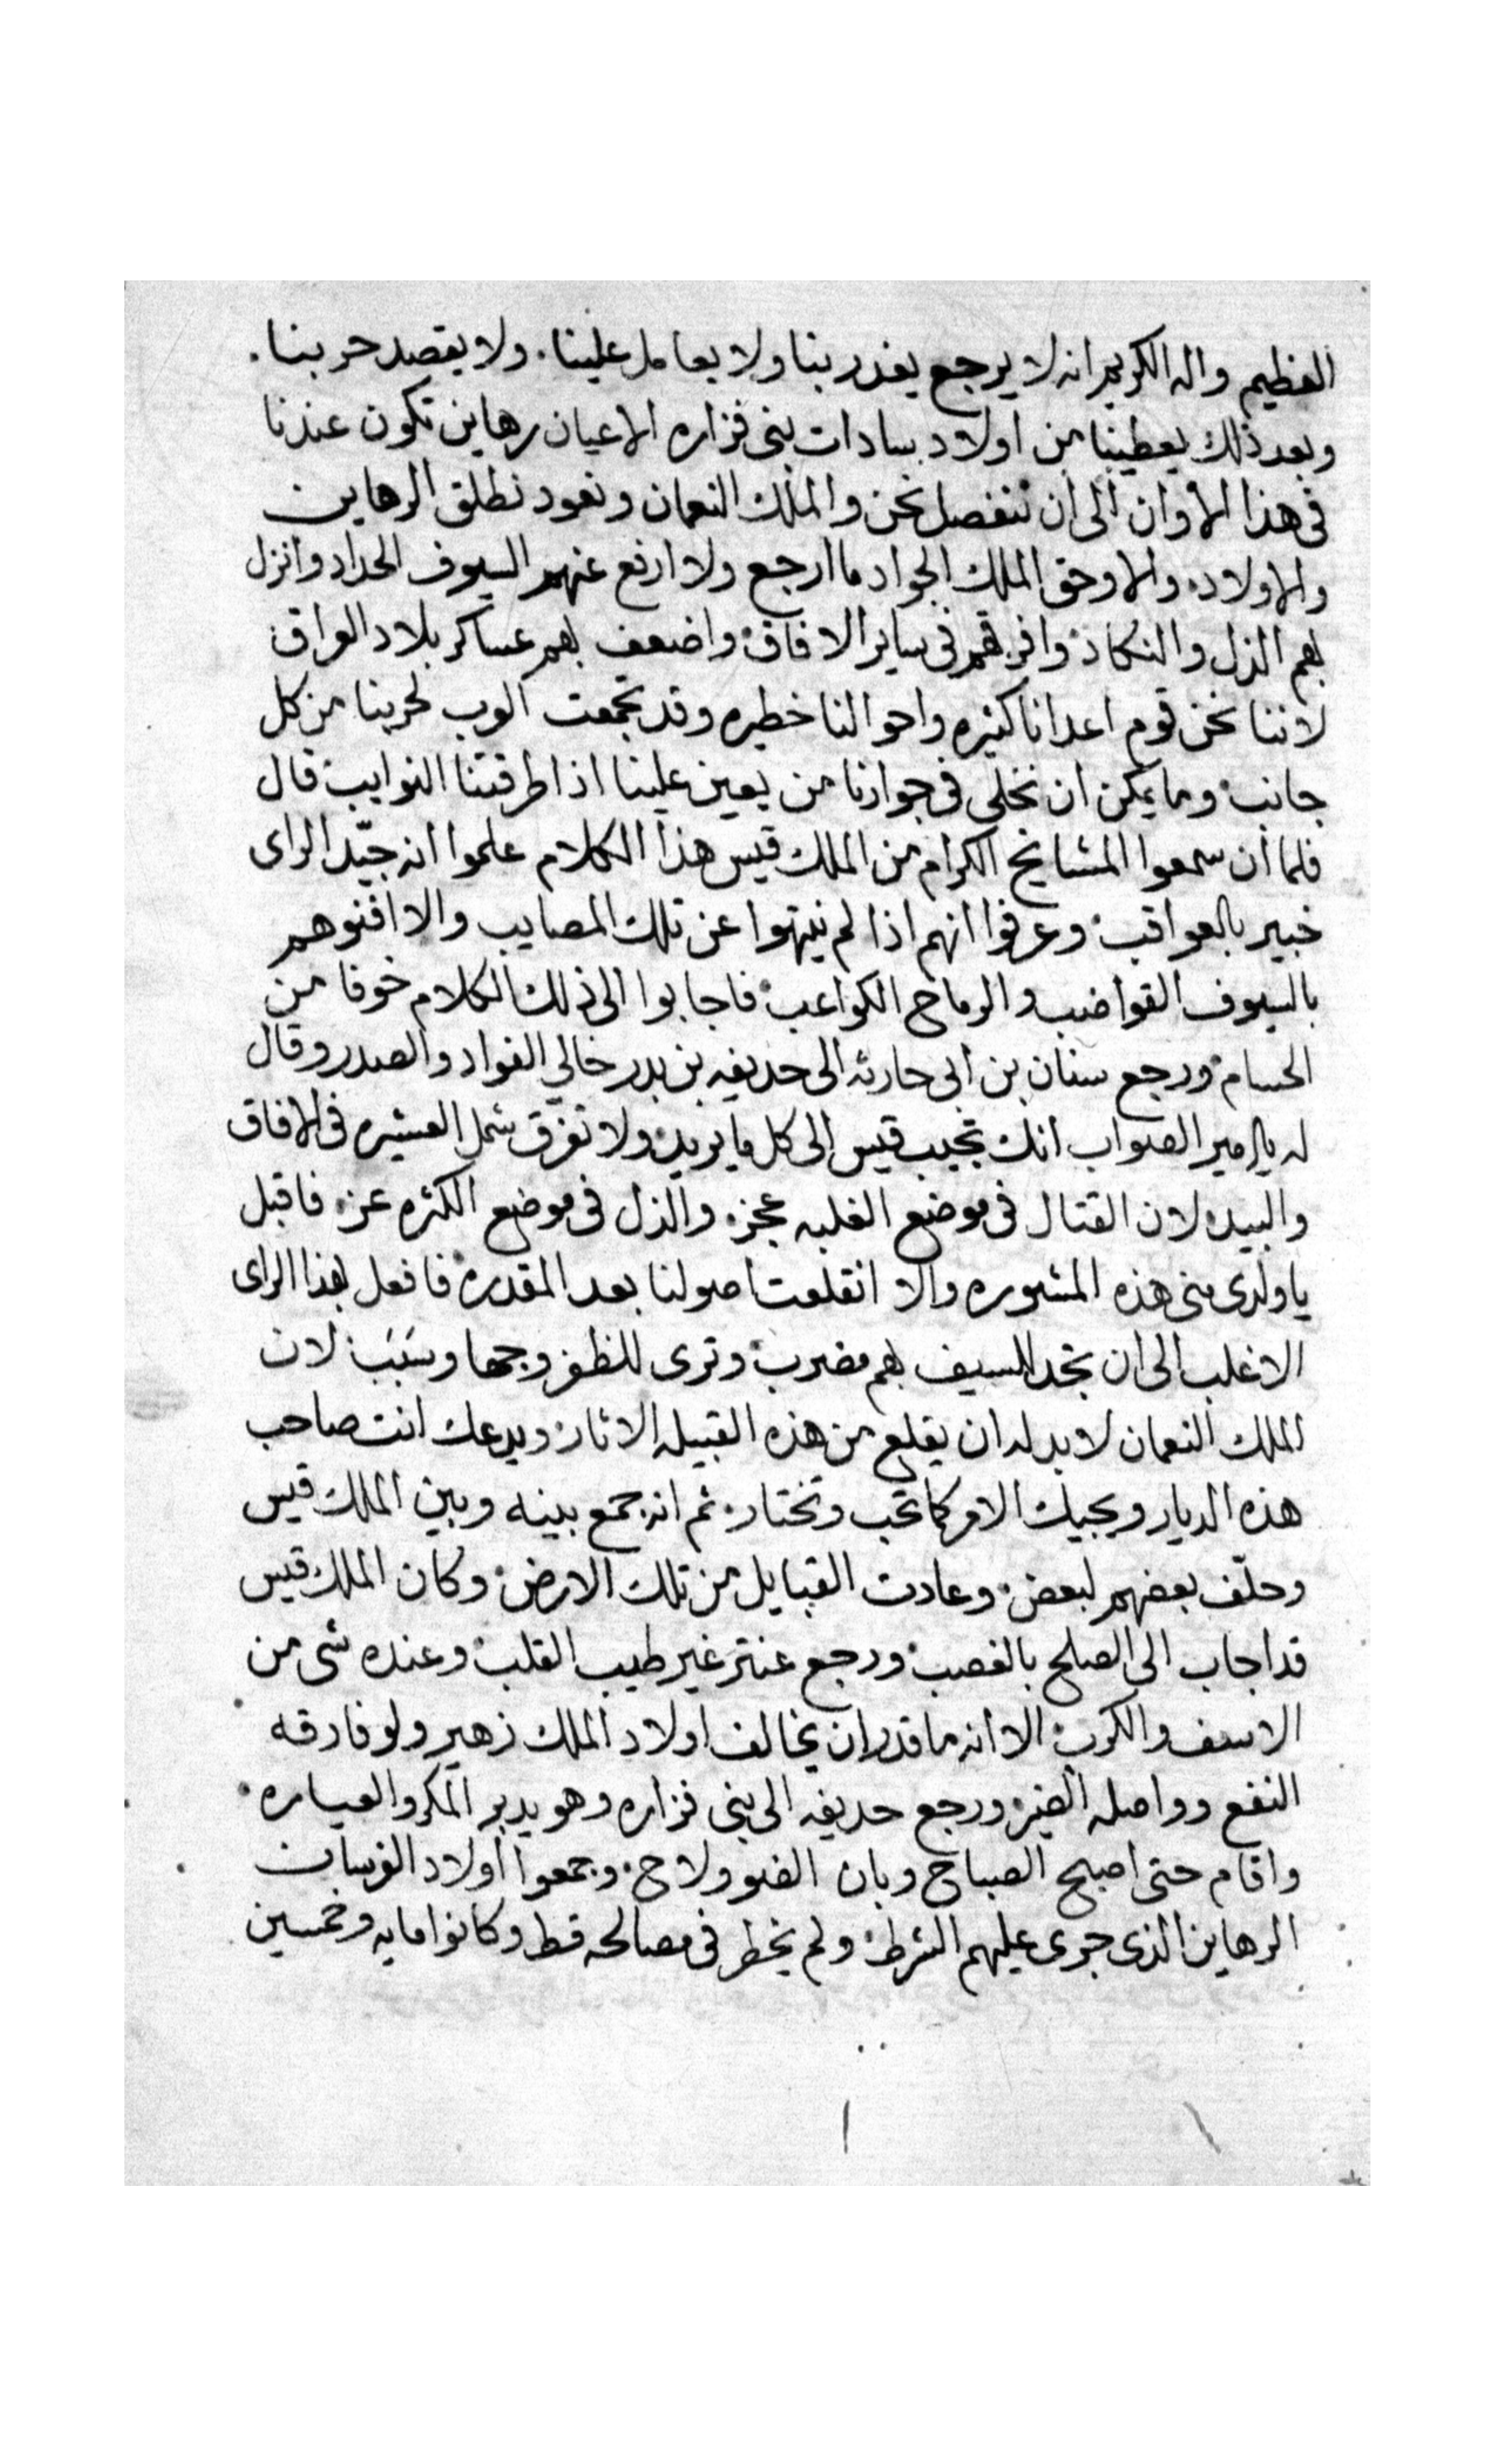 العظيم واله الكريم انه لا يرجع يغدر بنا ولا يعامل علينا. ولا يقصد حربنا.
وبعد ذلك يعطينا من اولاد سادات بنى فزاره الاعيان رهاين تكون عندنا
فى هذا الاوان الى ان ننفصل نحن والملك النعمان ونعود نطلق الرهاين
والاولاد. والا وحق الملك الجواد ما ارجع ولا ارفع عنهم السيوف الحداد وانزل
بهم الذل والنكاد وافرقهم فى ساير الافاق واضعف بهم عساكر بلاد العراق
لاننا نحن قوم اعدانا كثيره واحوالنا خطيره وقد تجمعت العرب لحربنا من كل
جانب وما يمكن ان نخلى فى جوارنا من يعين علينا اذا طرقتنا النوايب قال
فلما ان سمعوا المشايخ الكرام من الملك قيس هذا الكلام علموا انه جيّد الراى
خبير بالعواقب وعرفوا انهم اذا لم ينتهوا عن تلك المصايب والا افنوهم
بالسيوف القواضب والرماح الكواعب فاجابوا الى ذلك الكلام خوفا من
الحسام ورجع سنان بن ابى حارثه الى حذيفه بن بدر خالي الفواد والصدر وقال
له يا امير الصواب انك تجيب قيس الى كل ما يريد ولا تفرق شمل العشيره فى الافاق
والبيد لان القتال فى موضع الغلبه عجز. والذل فى موضع الكثره عز. فاقبل
يا ولدى منى هذه المشوره والا انقلعت اصولنا بعد المقدره فافعل بهذا الراى
الاغلب الى ان تجد للسيف بهم مضرب وترى للظفر وجها وسَبَب لان
الملك النعمان لابد له ان يقلع من هذه القبيله الاثار ويدعك انت صاحب
هذه الديار ويجيك الامر كما تحب وتختار. ثم انه جمع بينه وبين الملك قيس
وحلّف بعضهم لبعض وعادت القبايل من تلك الارض وكان الملك قيس
قد اجاب الى الصلح بالغصب ورجع عنتر غير طيب القلب وعنده شى من
الاسف والكرب الا انه ما قدر ان يخالف اولاد الملك زهير ولو فارقه
النفع وواصله الضير ورجع حديفه الى بنى فزاره وهو يدبر المكر والعياره.
واقام حتى اصبح الصباح وبان الضو ولاح. وجمعوا اولاد الفرسان
الرهاين الذى جرى عليهم الشرط ولم يخطر فى مصالحه قط وكانوا مايه وخمسين